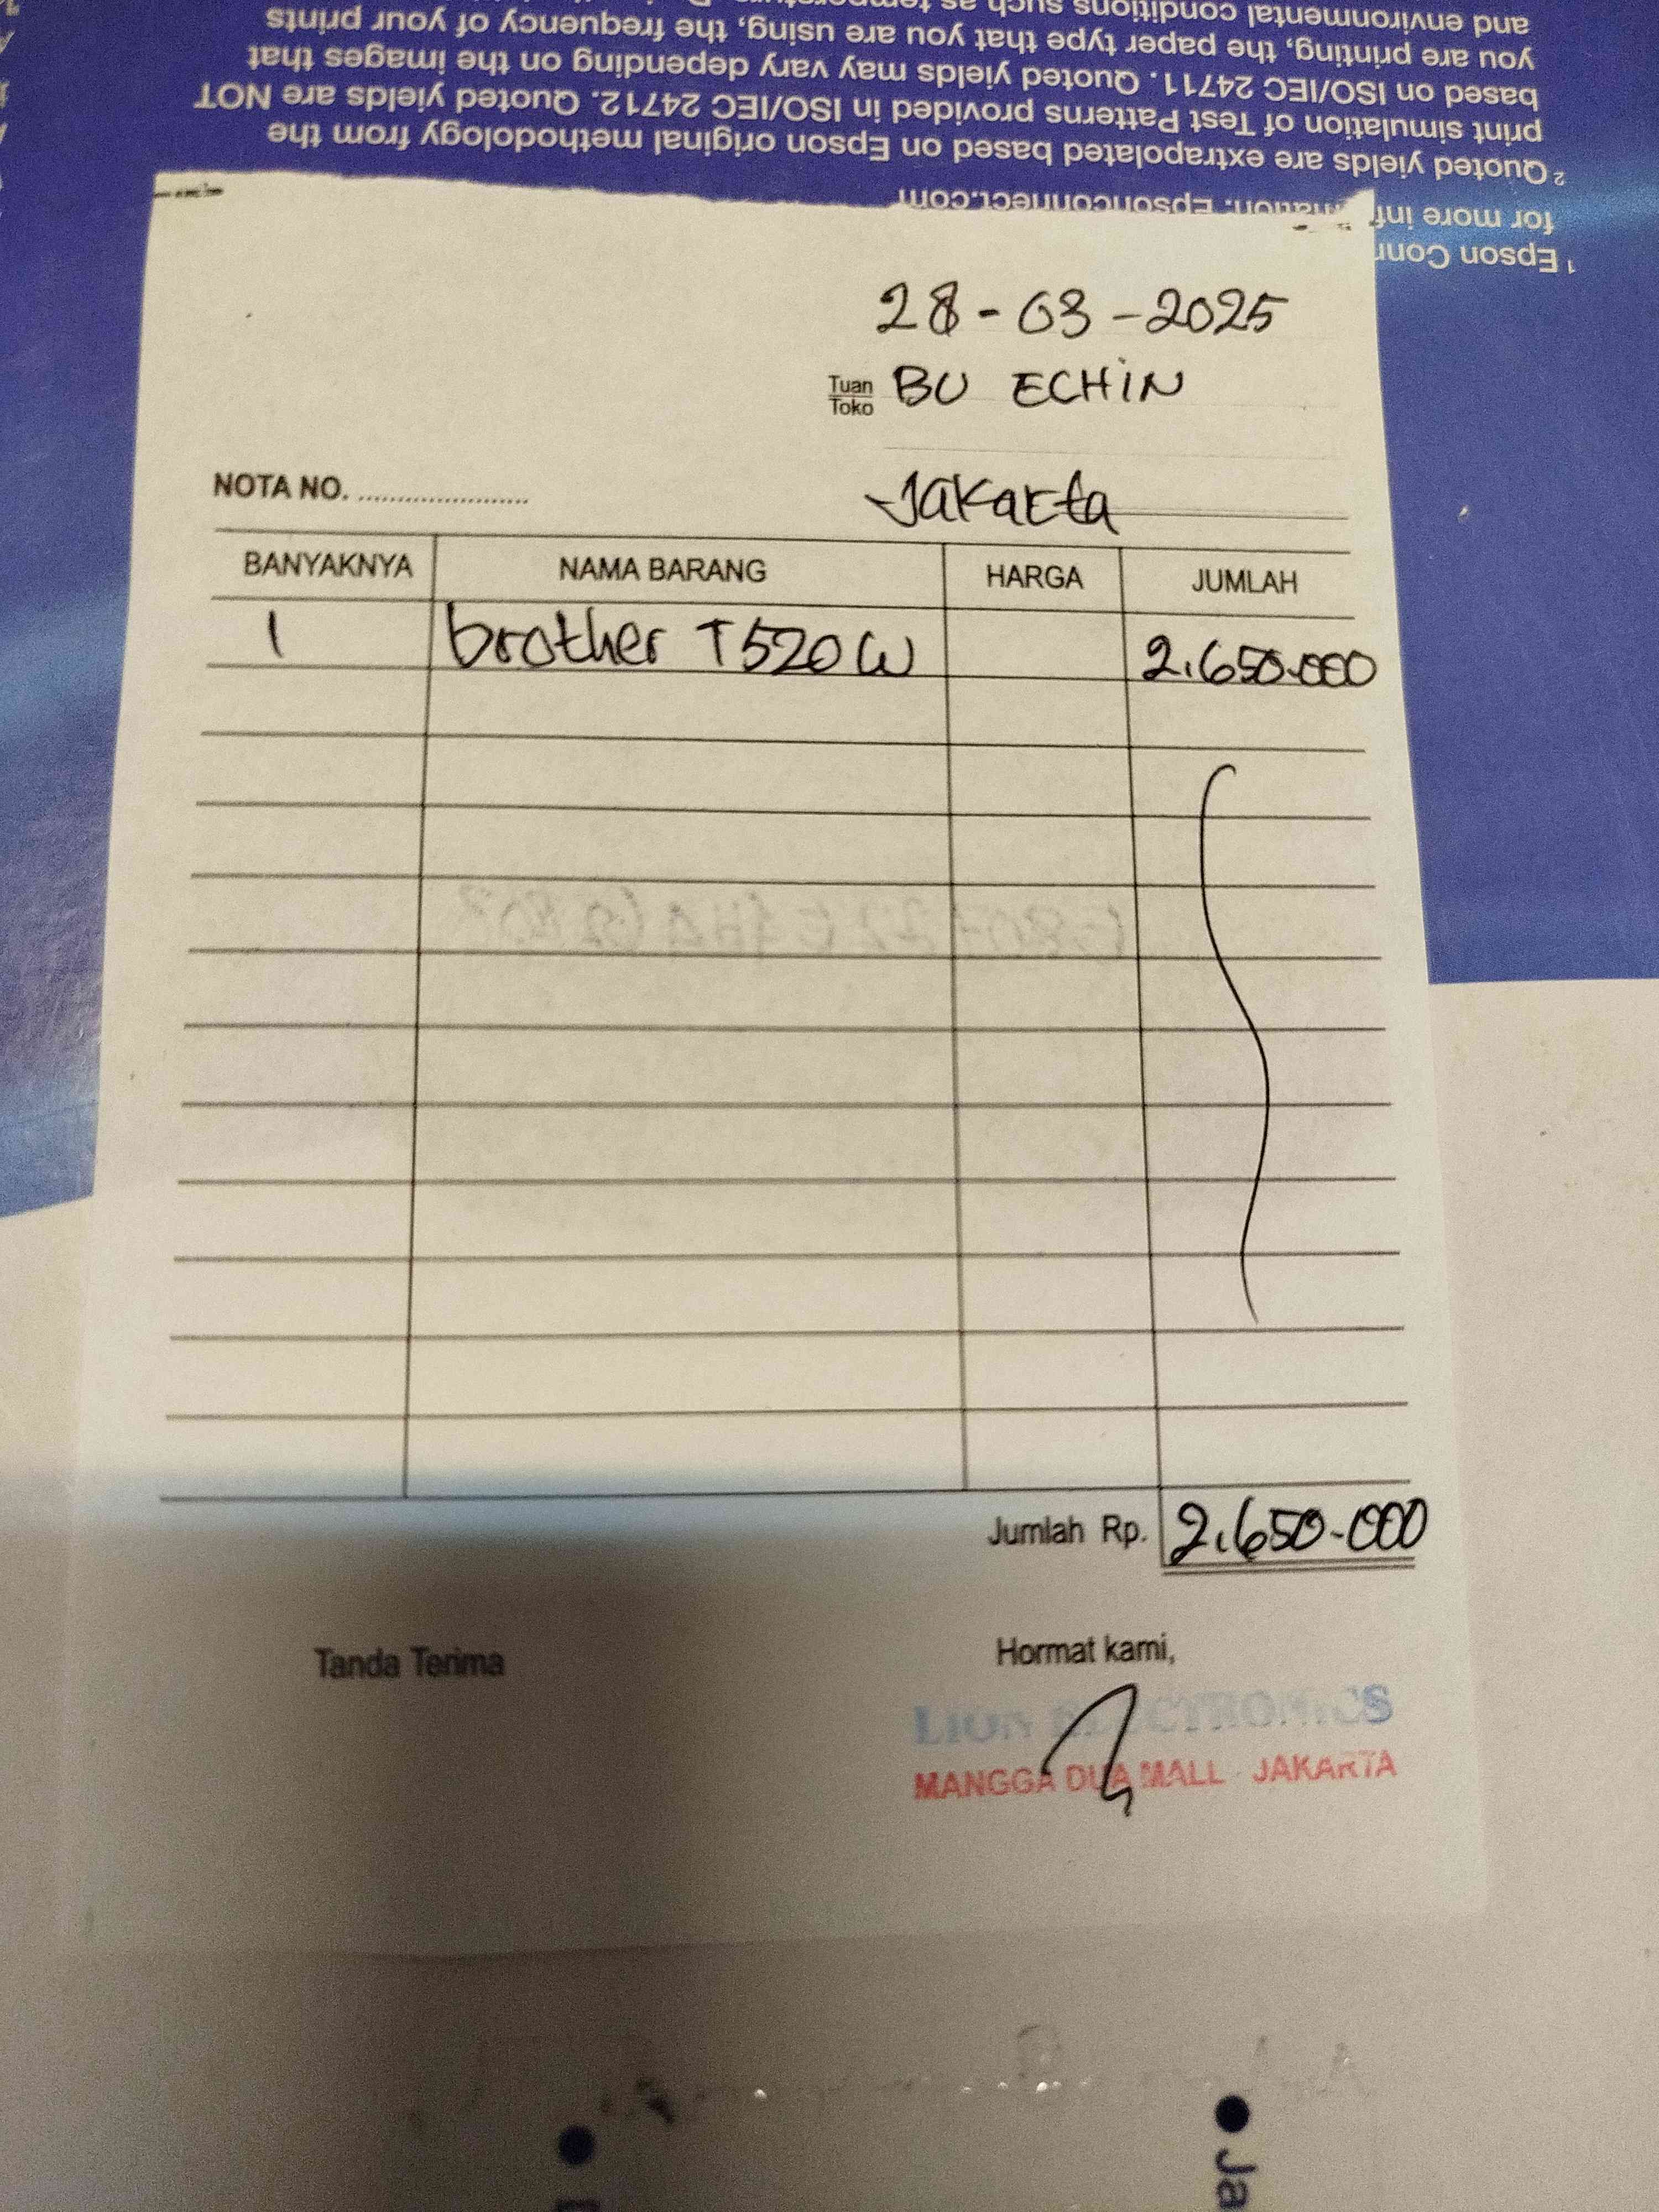 and environmental conditions such as
you are printing, the paper type that you are using, the frequency of your prints
based on ISO/IEC 24711. Quoted yields may vary depending on the images that
print simulation of Test Patterns provided in ISO/IEC 24712. Quoted yields are NOT
² Quoted yields are extrapolated based on Epson original methodology from the
for more Epsonconnect.com
¹ Epson
28-03-2025
Tuan
Toko
BU ECHIN
NOTA NO. ......................
Jakarta
BANYAKNYA NAMA BARANG HARGA JUMLAH
1 brother T520W 2.650.000
Jumlah Rp. 2.650.000
Tanda Terima Hormat kami,
LION ELECTRONICS
MANGGA DUA MALL JAKARTA
Ja